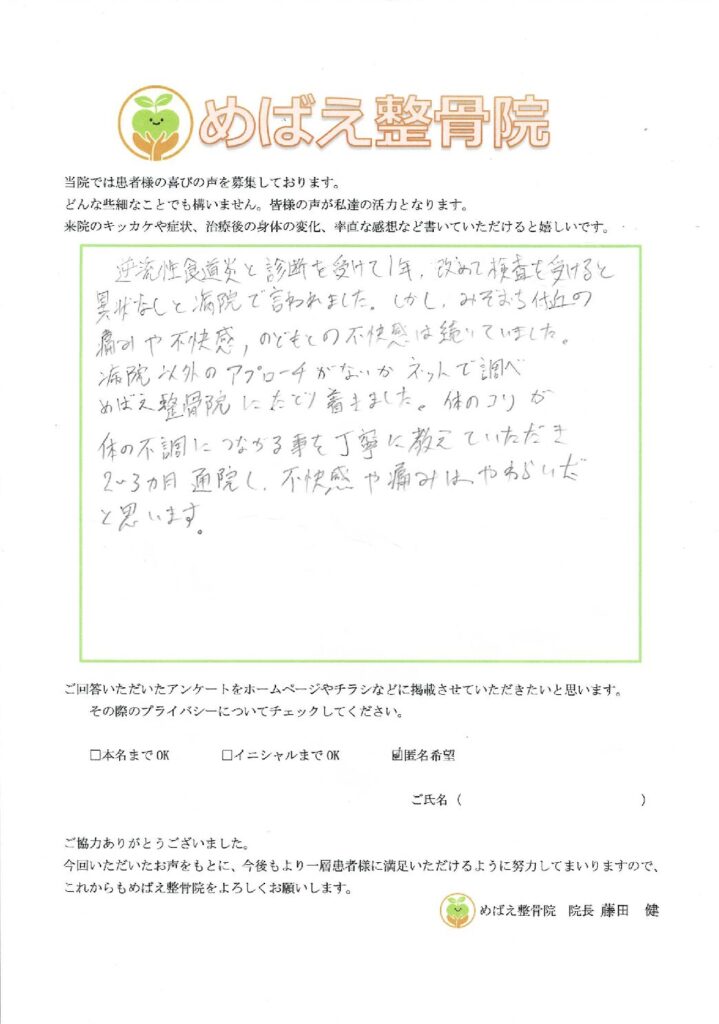 めばえ整骨院
当院では患者様の喜びの声を募集しております。
どんな些細なことでも構いません。皆様の声が私達の活力となります。
来院のキッカケや症状、治療後の身体の変化、率直な感想など書いていただけると嬉しいです。
逆流性食道炎と診断を受けて1年、改めて検査を受けると
異状なしと病院で言われました。しかし、みぞおち付近の
痛みや不快感,のどもとの不快感は続いていました。
病院以外のアプローチがないかネットで調べ
めばえ整骨院にたどり着きました。体のコリが
体の不調につながる事を丁寧に教えていただき
2~3カ月通院し、不快感や痛みは、やわらいだ
と思います。
ご回答いただいたアンケートをホームページやチラシなどに掲載させていただきたいと思います。
その際のプライバシーについてチェックしてください。
□本名までOK □イニシャルまでOK ☑匿名希望
ご氏名( )
ご協力ありがとうございました。
今回いただいたお声をもとに、今後もより一層患者様に満足いただけるように努力してまいりますので、
これからもめばえ整骨院をよろしくお願いします。
めばえ整骨院 院長 藤田 健